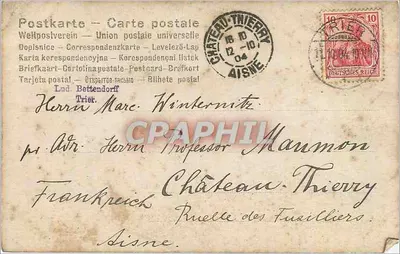 Postkarte - Carte postale
Weltpostverein - Union postale universelle
Dopisnice - Correspondenzkarte - Levelező-Lap
Karta korespondencyjna - Korespondenční lístek
Briefkaart - Cartolina postale - Postcard - Brefkort
Tarjeta postal - Открытое письмо - Bilhete postal
Lud. Bettendorff
Trier.
CHATEAU-THIERRY
16 10
12 -10
04
AISNE
10 10
DEUTSCHES REICH
TRIER
11.10.04
Herrn Marc. Winternitz
CPAPHIL
pr Adr. Herrn Professor Maumon
Château-Thierry
Frankreich
Ruelle des Fusilliers
Aisne.